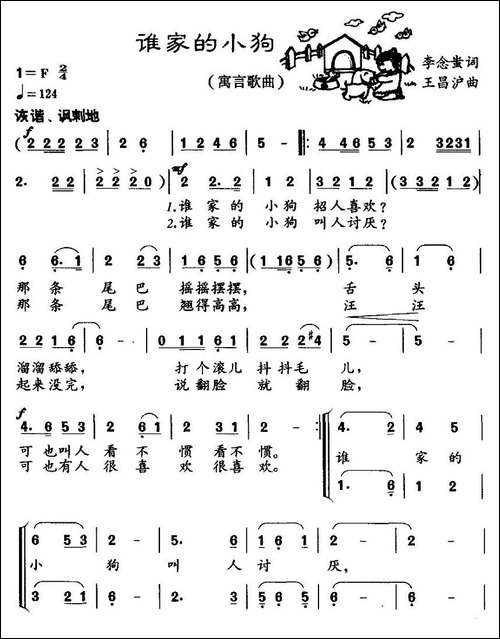 谁家的小狗
(寓言歌曲)
李念蚩词
王昌沪曲
1=F 2/4
♩=124
诙谐、讽刺地
f
(2 2 2 2 2 3 | 2 6 | 1 2 4 6 | 5 - ‖: 4 4 6 5 3 | 2 3231 |
mf
2. 2 2 | 2 2 2 2 0) | 2 2. 2 | 1 2 | 3 2 1 2 | (3 3 2 1 2) |
1.谁 家 的 小 狗 招 人 喜 欢?
2.谁 家 的 小 狗 叫 人 讨 厌?
6 6. 1 | 2 2 | 1 6 5 6 | (1 1 6 5 6) | 5. 6 | 1 6 |
那 条 尾 巴 摇 摇 摆 摆, 舌 头
那 条 尾 巴 翘 得 高 高, 汪 汪
2 2 1 6 | 2 - | 0 1 1 1 | 6 1 | 2 2 2 #4 | 5 - |
溜 溜 舔 舔, 打 个 滚 儿 抖 抖 毛 儿,
起 来 没 完, 说 翻 脸 就 翻 脸,
f
4. 6 5 3 | 2 2 | 2 6 1 | 2 3 1 | 2 - | 4. 2 | 4 5 |
可 也 叫 人 看 不 惯 看 不 惯。 谁 家 的
可 也 有 人 很 喜 欢 很 喜 欢。
1. 6 | 1 2 |
6 5 3 | 2 - | 5 6 5 | 1 2 | 1 6 1 | 2 - |
小 狗 叫 人 讨 厌,